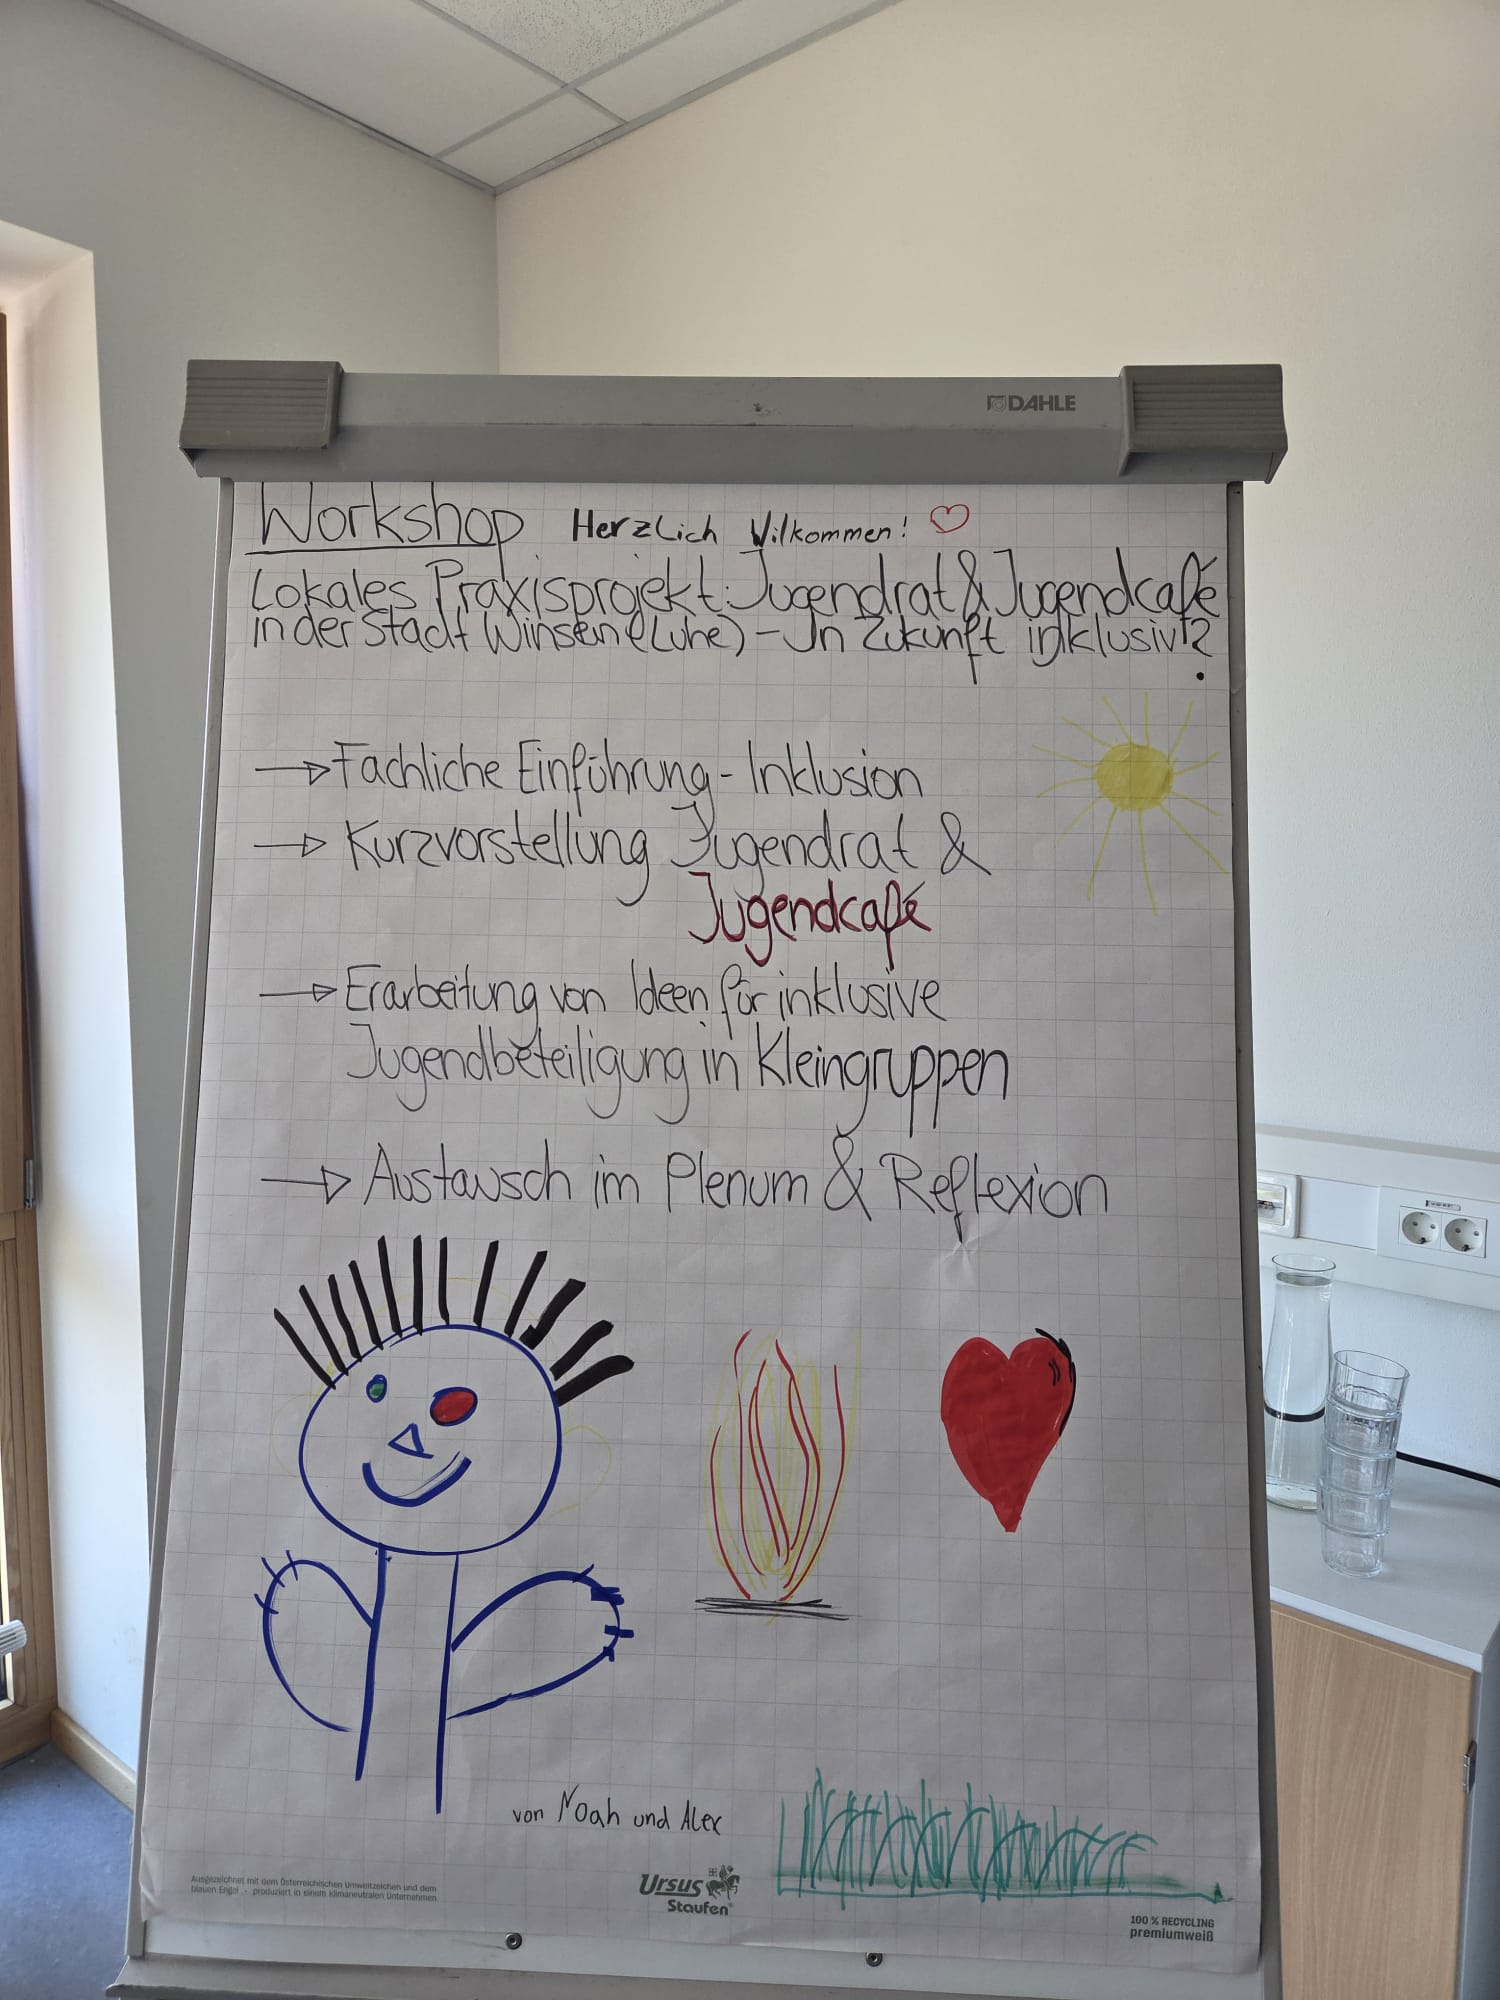 DAHLE
Workshop Herzlich Wilkommen!
Lokales Praxisprojekt: Jugendrat & Jugendcafé
in der Stadt Winsen (Luhe) – In Zukunft inklusiv!?
→ Fachliche Einführung - Inklusion
→ Kurzvorstellung Jugendrat &
Jugendcafé
→ Erarbeitung von Ideen für inklusive
Jugendbeteiligung in Kleingruppen
→ Austausch im Plenum & Reflexion
von Noah und Alex
Ausgezeichnet mit dem Österreichischen Umweltzeichen und dem
blauen Engel - produziert in einem klimaneutralen Unternehmen
Ursus
Staufen
100 % RECYCLING
premiumweiß